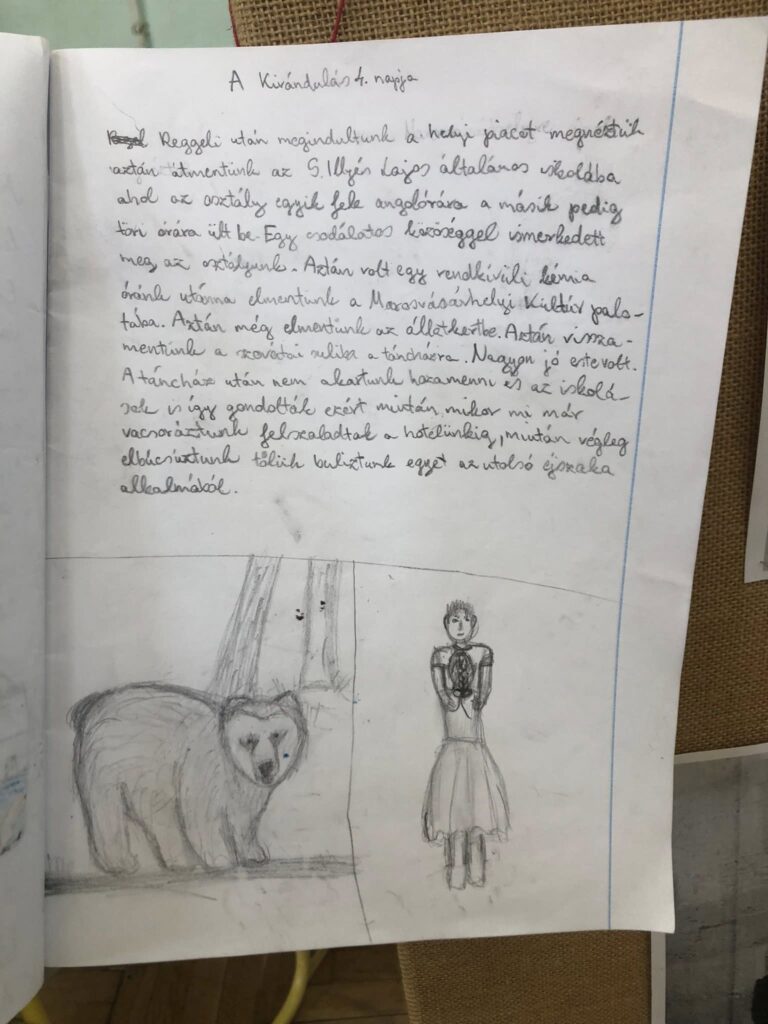 A Kirándulás 4. napja
Reggeli után megindultunk a helyi piacot megnéztük
aztán átmentünk az S. Illyés Lajos általános iskolába
ahol az osztály egyik fele angolórára a másik pedig
töri órára ült be. Egy csodálatos közöséggel ismerkedett
meg az osztályunk. Aztán volt egy rendkívüli kémia
óránk utánna elmentünk a Marosvásárhelyi Kultúr palo-
tába. Aztán még elmentünk az állatkertbe. Aztán vissza-
mentünk a szovátai suliba a táncházra. Nagyon jó este volt.
A táncház után nem akartunk hazamenni és az iskolá-
sok is így gondolták ezért miután, mikor mi már
vacsoráztunk felszaladtak a hotelünkig, miután végleg
elbúcsúztunk tőlük buliztunk egyet az utolsó éjszaka
alkalmából.